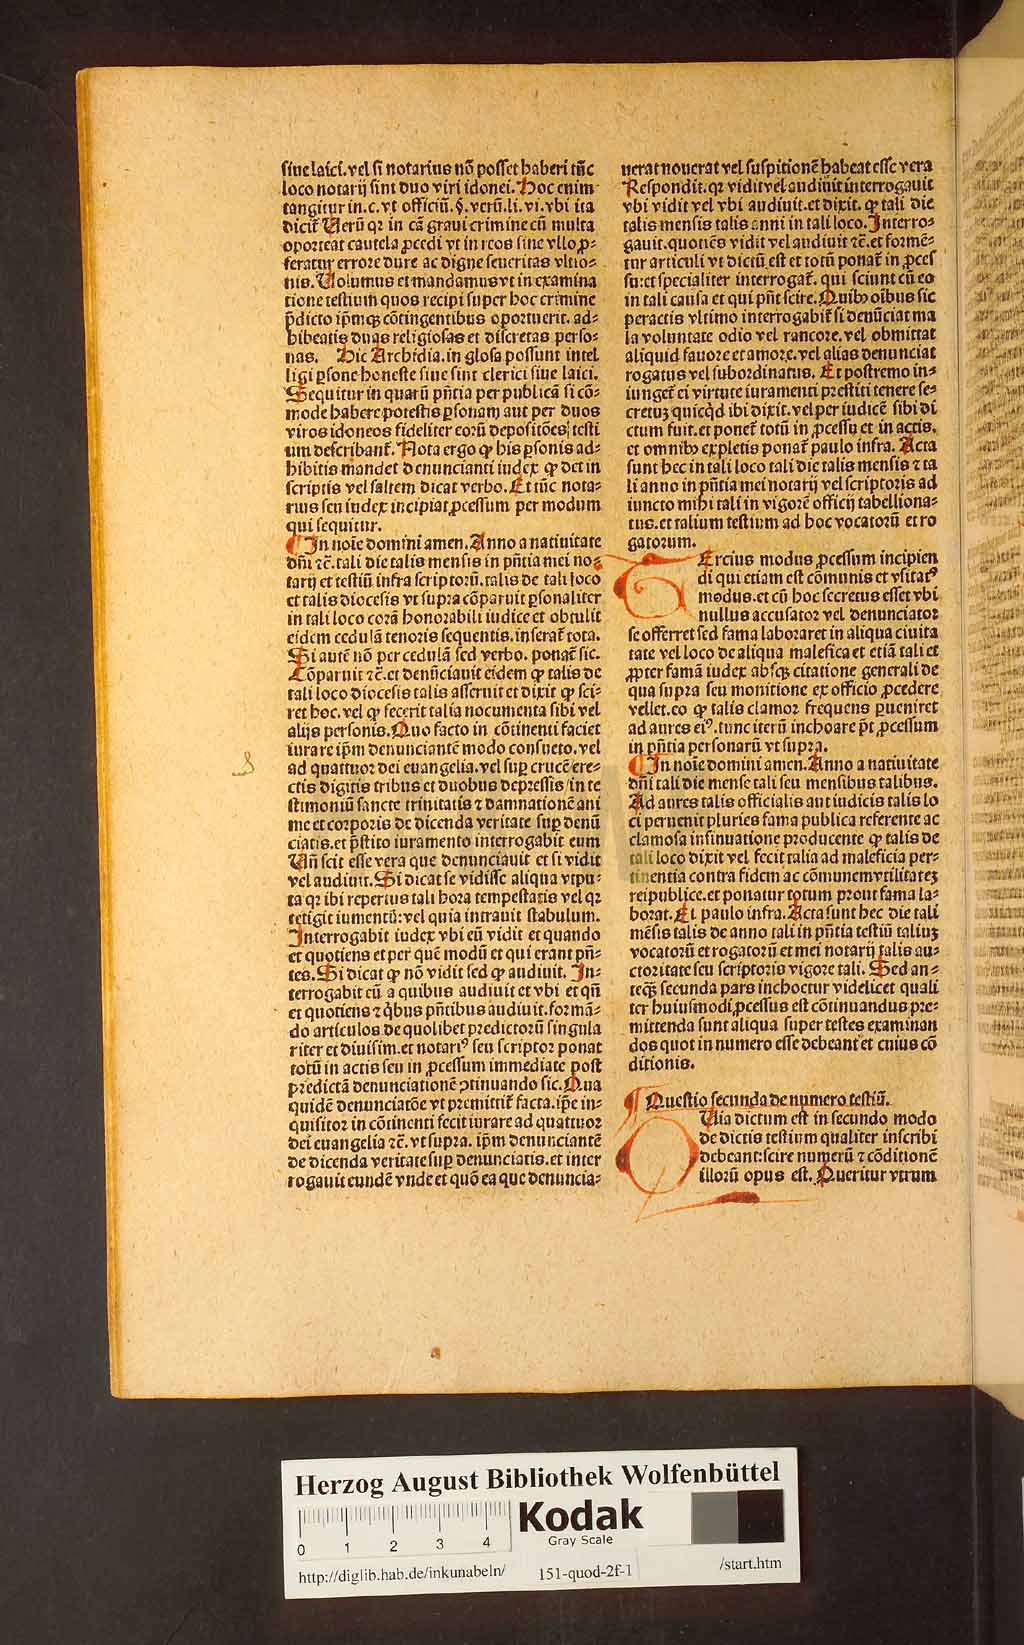 siue laici. vel si notarius nō posset haberi tūc
loco notarij sint duo viri idonei. Hoc enim
tangitur in. c. vt officiū. §. verū. li. vi. vbi ita
dicit̄ Uerū qꝛ in cā graui crimine cū multa
oporteat cautela ꝓcedi vt in reos sine vllo ꝓ-
feratur errore dure ac digne seueritas vltio-
nis. Uolumus et mandamus vt in examina
tione testium quos recipi super hoc crimine
p̄dicto ip̄mqꝫ cōtingentibus oportuerit. ad-
hibeatis duas religiosas et discretas perso-
nas. Hic Archidia. in glosa possunt intel
ligi ꝑsone honeste siue sint clerici siue laici.
Sequitur in quarū pn̄tia per publicā si cō-
mode habere potestis ꝑsonam aut per duos
viros idoneos fideliter eorū depositōes testi
um describant̄. Nota ergo ꝙ his ꝑsonis ad-
hibitis mandet denuncianti iudex ꝙ det in
scriptis vel saltem dicat verbo. Et tūc nota-
rius seu iudex incipiat ꝓcessum per modum
qui sequitur.
¶ In noīe domini amen. Anno a natiuitate
dn̄i ⁊c̄. tali die talis mensis in pn̄tia mei no-
tarij et testiū infra scriptoꝝ. talis de tali loco
et talis diocesis vt supra cōparuit ꝑsonaliter
in tali loco corā honorabili iudice et obtulit
eidem cedulā tenoris sequentis. inserat̄ tota.
Si autē nō per cedulā sed verbo. ponat̄ sic.
Cōparuit ⁊c̄. et denūciauit eidem ꝙ talis de
tali loco diocesis talis asseruit et dixit ꝙ sci-
ret hoc. vel ꝙ fecerit talia nocumenta sibi vel
alijs personis. Quo facto in cōtinenti faciet
iurare ip̄m denunciantē modo consueto. vel
ad quattuor dei euangelia. vel suꝑ crucē ere-
ctis digitis tribus et duobus depressis in te
stimoniū sancte trinitatis ⁊ damnationē ani
me et corporis de dicenda veritate suꝑ denū
ciatis. et p̄stito iuramento interrogabit eum
Un̄ scit esse vera que denunciauit et si vidit
vel audiuit. Si dicat se vidisse aliqua vtpu-
ta qꝛ ibi repertus tali hora tempestatis vel qꝛ
tetigit iumentū: vel quia intrauit stabulum.
Interrogabit iudex vbi eū vidit et quando
et quotiens et per quē modū et qui erant pn̄-
tes. Si dicat ꝙ nō vidit sed ꝙ audiuit. In-
terrogabit cū a quibus audiuit et vbi et qn̄
et quotiens ⁊ q̇bus pn̄tibus audiuit. formā-
do articulos de quolibet predictorū singula
riter et diuisim. et notariꝰ seu scriptor ponat
totū in actis seu in ꝓcessum immediate post
predictā denunciationē ꝯtinuando sic. Qua
quidē denunciatōe vt premittit̄ facta. ip̄e in-
quisitor in cōtinenti fecit iurare ad quattuor
dei euangelia ⁊c̄. vt supra. ip̄m denunciantē
de dicenda veritate suꝑ denunciatis. et inter
rogauit eundē vnde et quō ea que denuncia-
uerat nouerat vel suspitionē habeat esse vera
Respondit. qꝛ vidit vel audiuit interrogauit
vbi vidit vel vbi audiuit. et dixit. ꝙ tali die
talis mensis talis anni in tali loco. Interro-
gauit. quotiēs vidit vel audiuit ⁊c̄. et formē-
tur articuli vt dictū est et totū ponat̄ in ꝓces
su: et specialiter interrogat̄. qui sciunt cū eo
in tali causa et qui pn̄t scire. Quibꝫ oībus sic
peractis vltimo interrogabit̄ si denūciat ma
la voluntate odio vel rancore. vel obmittat
aliquid fauore et amore. vel alias denunciat
rogatus vel subordinatus. Et postremo in-
iunget̄ ei virtute iuramenti prestiti tenere se-
cretuꝫ quicq̇d ibi dixit. vel per iudicē sibi di
ctum fuit. et ponet̄ totū in ꝓcessu et in actis.
et omnibꝫ expletis ponat̄ paulo infra. Acta
sunt hec in tali loco tali die talis mensis ⁊ ta
li anno in pn̄tia mei notarij vel scriptoris ad
iuncto mihi tali in vigorē officij tabelliona-
tus. et talium testium ad hoc vocatorū et ro
gatorum.
Tercius modus ꝓcessum incipien
di qui etiam est cōmunis et vsitatꝰ
modus. et cū hoc secretus esset vbi
nullus accusator vel denunciator
se offerret sed fama laboraret in aliqua ciuita
tate vel loco de aliqua malefica et etiā tali et
ꝓpter famā iudex absqꝫ citatione generali de
qua supra seu monitione ex officio ꝓcedere
vellet. eo ꝙ talis clamor frequens ꝑueniret
ad aures eiꝰ. tunc iterū inchoare pōt ꝓcessum
in pn̄tia personarū vt supra.
¶ In noīe domini amen. Anno a natiuitate
dn̄i tali die mense tali seu mensibus talibus.
Ad aures talis officialis aut iudicis talis lo
ci peruenit pluries fama publica referente ac
clamosa insinuatione producente ꝙ talis de
tali loco dixit vel fecit talia ad maleficia per-
tinentia contra fidem ac cōmunem vtilitateꝫ
reipublice. et ponatur totum prout fama la-
borat. Et paulo infra. Acta sunt hec die tali
mēsis talis de anno tali in pn̄tia testiū taliuꝫ
vocatorū et rogatorū et mei notarij talis au-
ctoritate seu scriptoris vigore tali. Sed an-
teqꝫ secunda pars inchoetur videlicet quali
ter huiusmodi ꝓcessus est cōtinuandus pre-
mittenda sunt aliqua super testes examinan
dos quot in numero esse debeant et cuius cō
ditionis.
¶ Questio secunda de numero testiū.
Quia dictum est in secundo modo
de dictis testium qualiter inscribi
debeant: scire numerū ⁊ cōditionē
illorū opus est. Queritur vtrum
Herzog August Bibliothek Wolfenbüttel
Kodak
Gray Scale
0 1 2 3 4
http://diglib.hab.de/inkunabeln/ 151-quod-2f-1 /start.htm